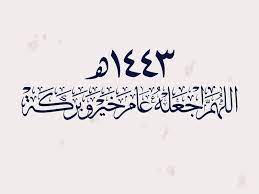 ١٤٤٣هـ
اللهم اجعله عام خير وبركة